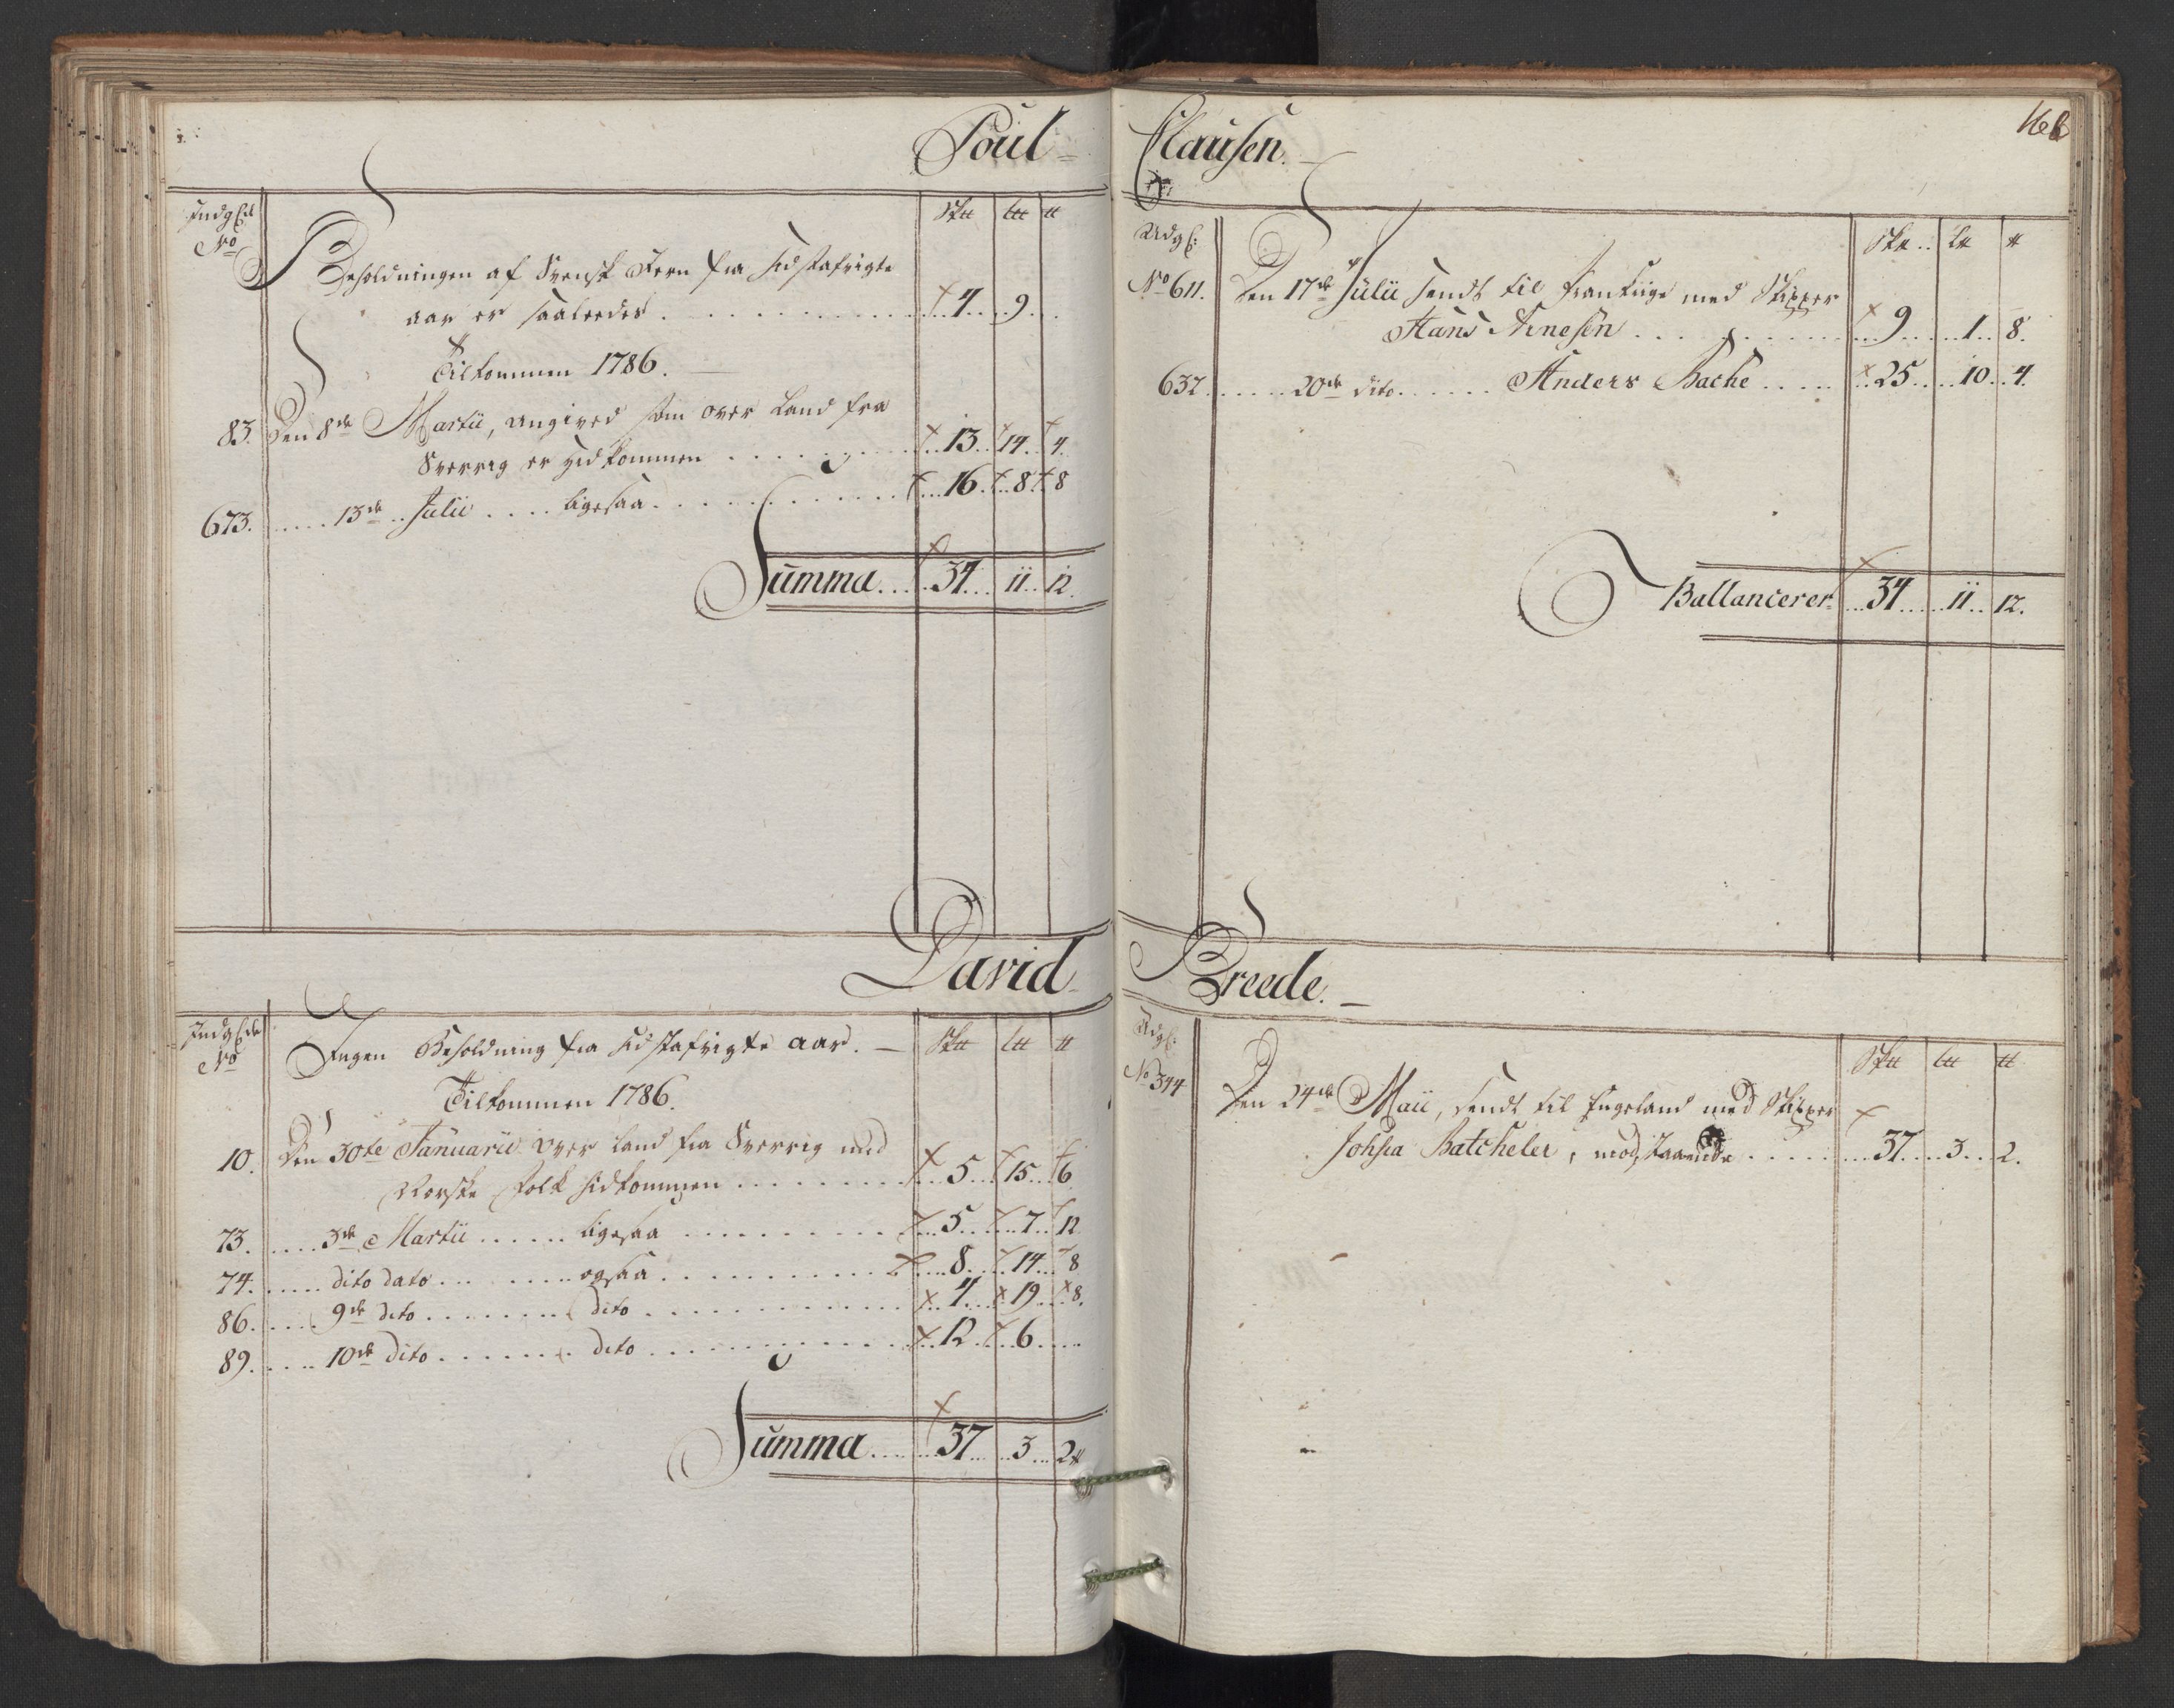 Poul Clausen.
Indg:de
No
Skll lll ll
Beholdningen af Svensk Jern fra sidstafvigte
aar er saaleedes . . . 4 . . 9 . .
Tilkommen 1786.
83. Den 8de Martii, angived som over Land fra
Sverrig er hidkommen . . . 13 . . 14 . . 4.
673. . . . 13de . . Julii . . . ligesaa . . . 16 . . 8 . . 8
Summa . . . 34 . . . 11 . . 12.
Udg:
Skll . . lll ll
No 611. Den 17de Julii sendt til Frankrige med Skipper
Hans Arnesen . . . 9 . . . 1 . . 8.
637. . . . 20de dito . . . Anders Bache . . . 25 . . . 10 . . 4.
Ballancerer . . . 34 . . . 11 . . 12.
David Breede.
Indg:de
No
Skll lll ll
Ingen Beholdning fra sidstafvigte aar.
Tilkommen 1786.
10. Den 30te Januarii over Land fra Sverrig med
Norske Folk hidkommen . . . 5 . . 15 . . 6
73. . . . 3de Martii . . . ligesaa . . . 5 . . 7 . . 12
74. . . . dito dato . . . ogsaa . . . 8 . . 14 . . 8
86. . . . 9de dito . . . dito . . . 4 . . 19 . . 8.
89. . . . 10de dito . . . dito . . . 12 . . 6 . . .
Summa . . . 37 . . . 3 . . . 2 ll
Udg:
Skll lll ll
No 344 Den 24de Maii, sendt til Engeland med Skipper
Johsia Batcheler, modstaaende . . . 37 . . . 3 . . . 2.